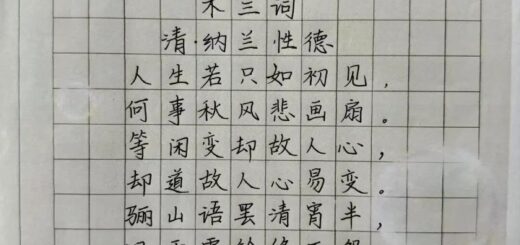 木兰词
清·纳兰性德
人生若只如初见，
何事秋风悲画扇。
等闲变却故人心，
却道故人心易变。
骊山语罢清宵半，